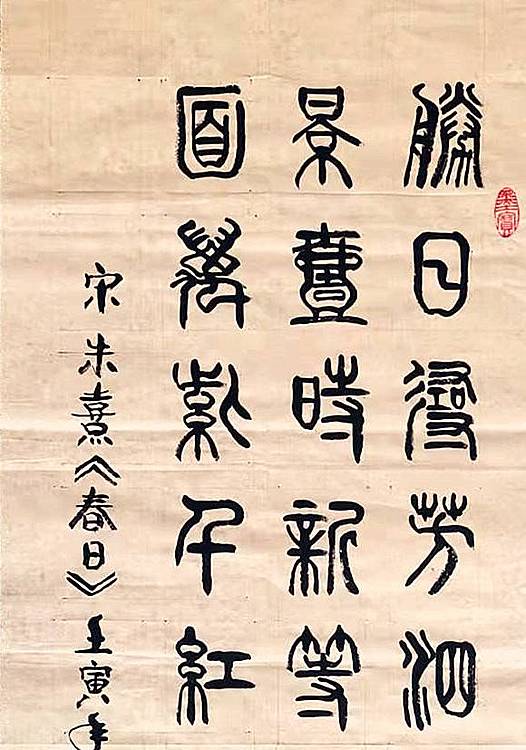 勝日尋芳泗
景壹時新等
面萬紫千紅
宋朱熹《春日》壬寅年